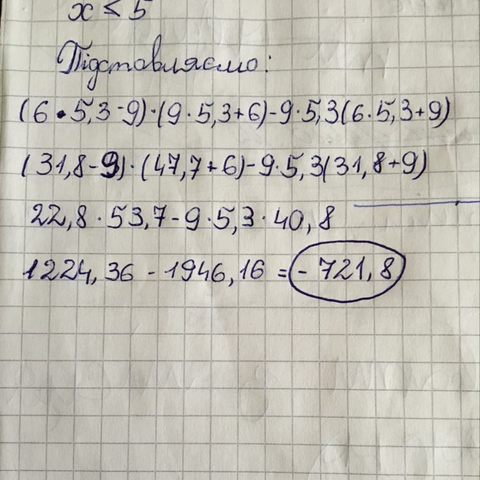 x < 5
Підставляємо:
(6 • 5,3 - 9) · (9 · 5,3 + 6) - 9 · 5,3 (6 · 5,3 + 9)
(31,8 - 9) · (47,7 + 6) - 9 · 5,3 (31,8 + 9)
22,8 · 53,7 - 9 · 5,3 · 40,8
1224,36 - 1946,16 = - 721,8